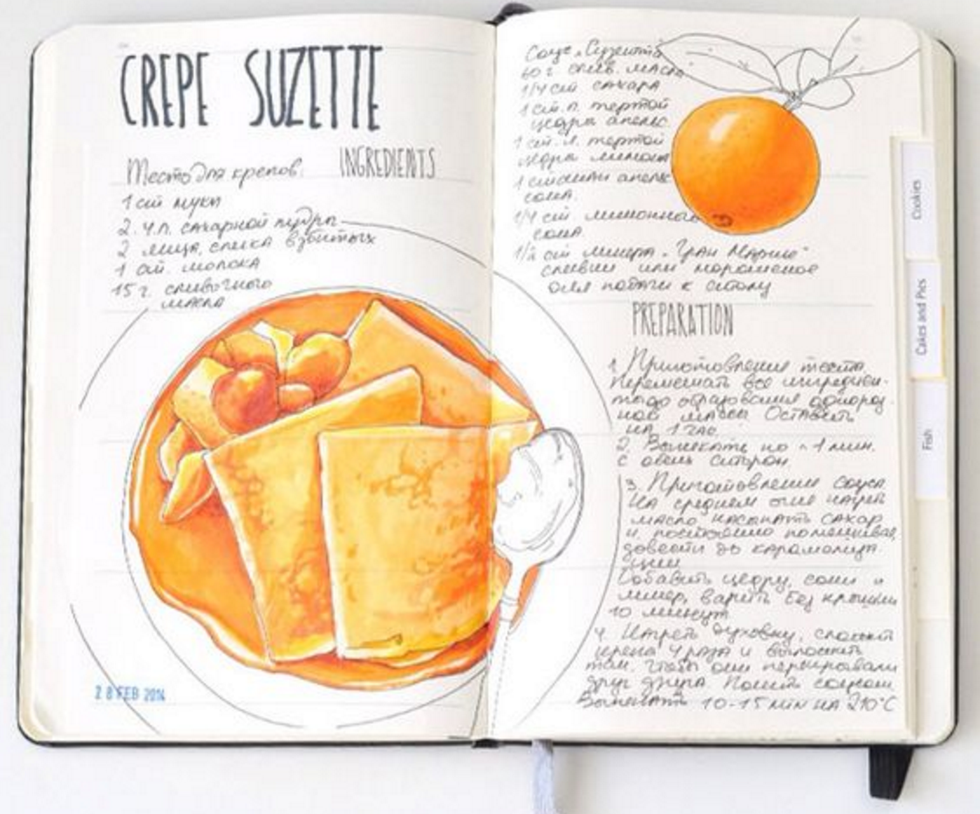 CREPE SUZETTE
INGREDIENTS
Тесто для крепов:
1 ст муки
2 ч.л. сахарной пудры
2 яйца, слегка взбитых
1 ст. молока
15 г. сливочного
масла
28 FEB 2014
Соус „Сюзетта"
60 г. слив. масла
1/4 ст сахара
1 ст.л. тертой
цедры апельс.
1 ст.л. тертой
цедры лимона
1 стакан апельс
сока.
1/4 ст лимонного
сока
1/2 ст ликера „Гран Марнье"
сливки или мороженое
для подачи к столу
PREPARATION
1. Приготовление теста.
Перемешать все ингредиен-
до образования однород-
ной массы. Оставить
на 1 час
2. Выпекать по ~1 мин.
с обеих сторон.
3. Приготовление соуса
На среднем огне нагреть
масло насыпать сахар
и, постоянно помешивая
довести до карамелиза-
ции
Добавить цедру, соки и
ликер, варить без крышки
10 минут
4. Нагреть духовку, сложить
крепы 4 раза и выложить
там, чтобы они перекрывали
друг друга. Полить соусом
Выпекать 10-15 мин на 210°C
Cookies
Cakes and Pies
Fish